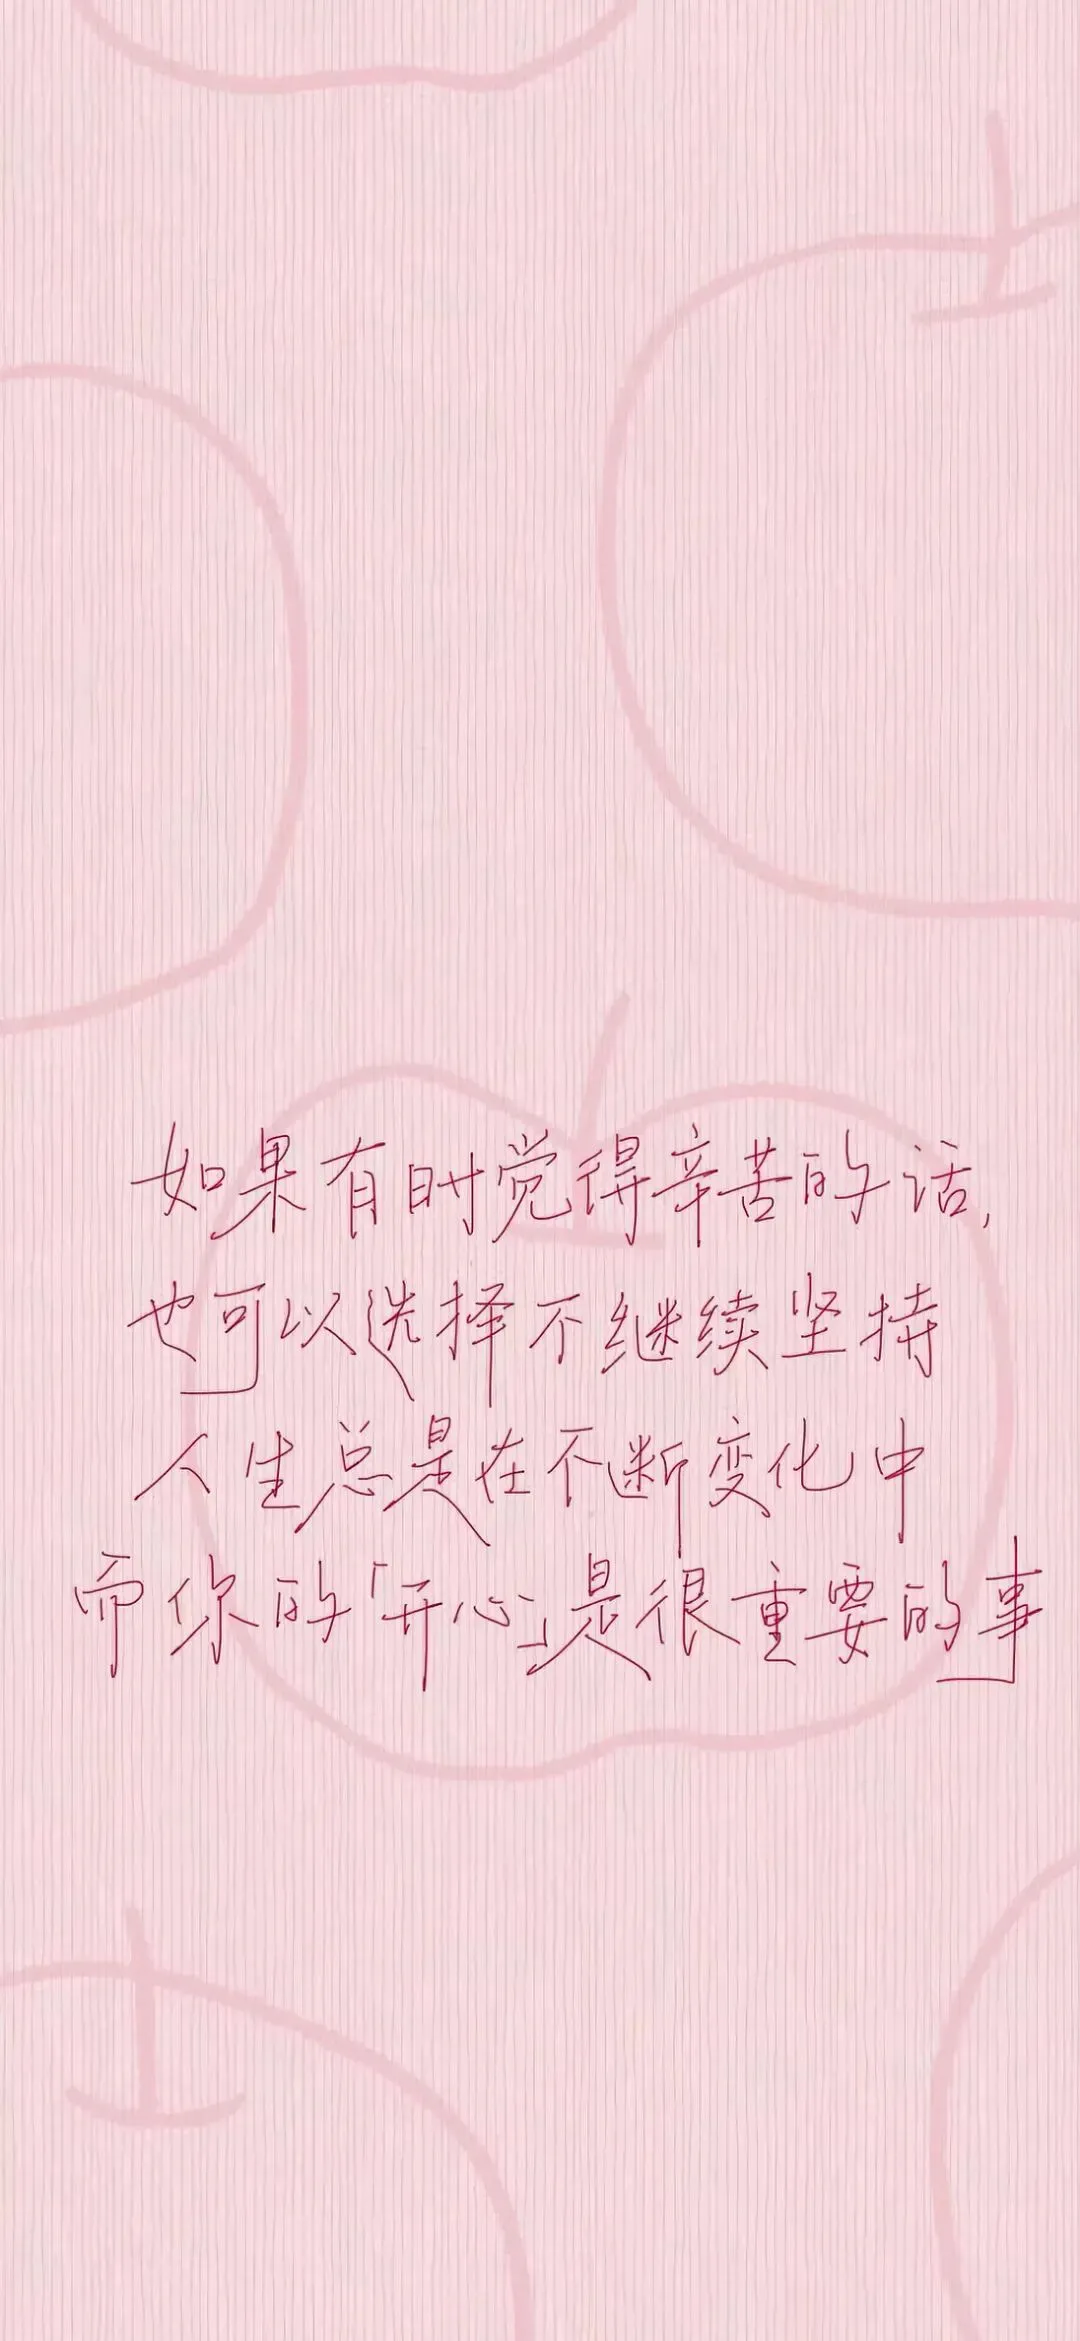 如果有时觉得辛苦的话,
也可以选择不继续坚持
人生总是在不断变化中
而你的「开心」是很重要的事